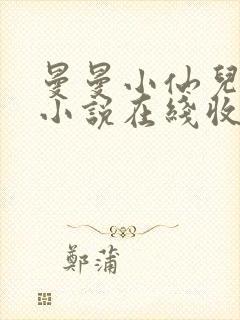 曼曼小仙兒
小說在綫收
鄭蒲